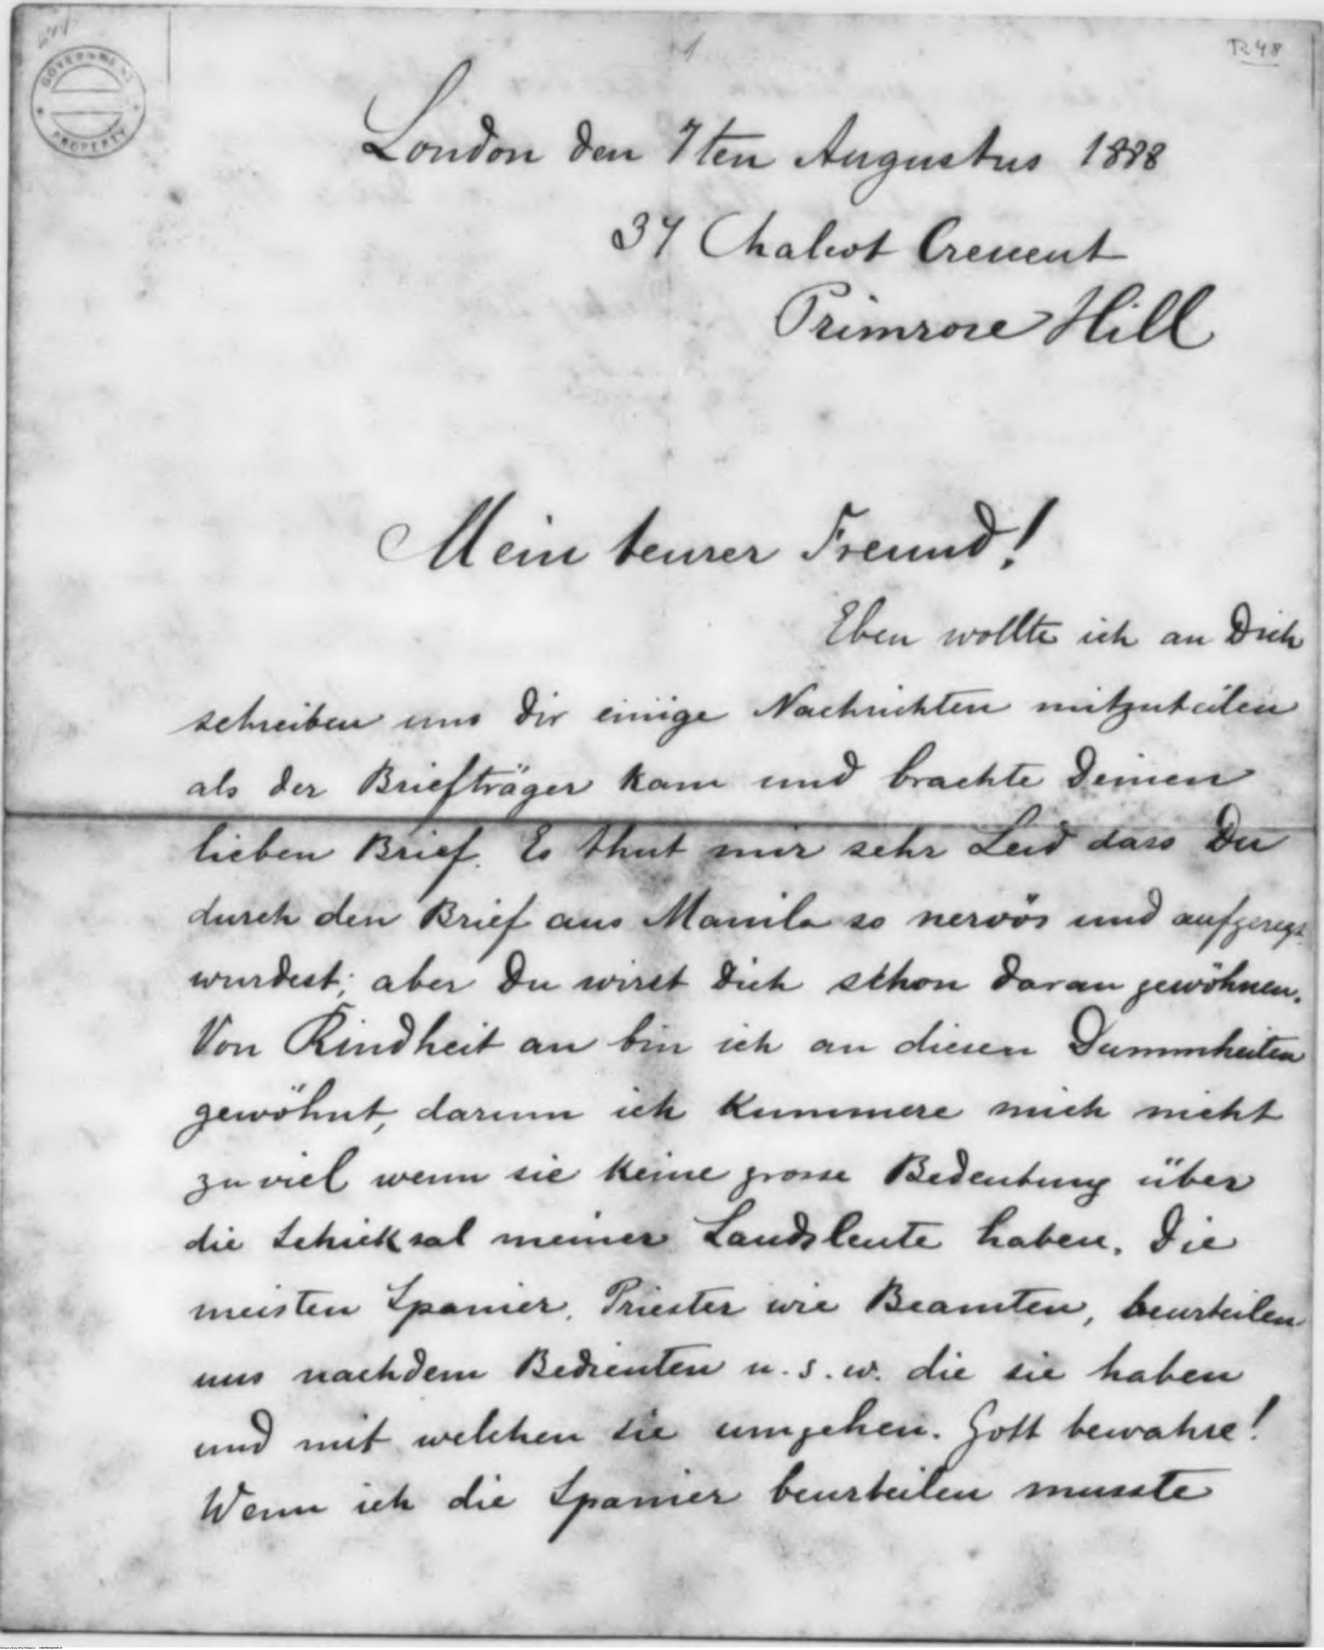 GOVERNMENT PROPERTY
R 48
1
London den 7ten Augustus 1888
37 Chalcot Crescent
Primrose Hill
Mein teurer Freund!
Eben wollte ich an Dich
schreiben um Dir einige Nachrichten mitzuteilen
als der Briefträger kam und brachte Deinen
lieben Brief. Es thut mir sehr Leid dass Du
durch den Brief aus Manila so nervös und aufgeregt
wurdest; aber Du wirst Dich schon daran gewöhnen.
Von Kindheit an bin ich an diesen Dummheiten
gewöhnt, darum ich kummere mich nicht
zu viel wenn sie keine grosse Bedeutung über
die Schicksal meiner Landsleute haben. Die
meisten Spanier, Priester wie Beamten, beurteilen
uns nachdem Bedienten u. s. w. die sie haben
und mit welchen sie umgehen. Gott bewahre!
Wenn ich die Spanier beurteilen musste